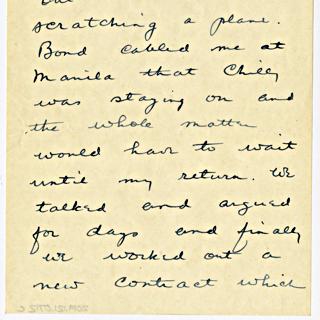 scratching a plane.
Bond cabled me at
Manila that Chilly
was staying on and
the whole matter
would have to wait
until my return. We
talked and argued
for days and finally
we worked out a
new contract which